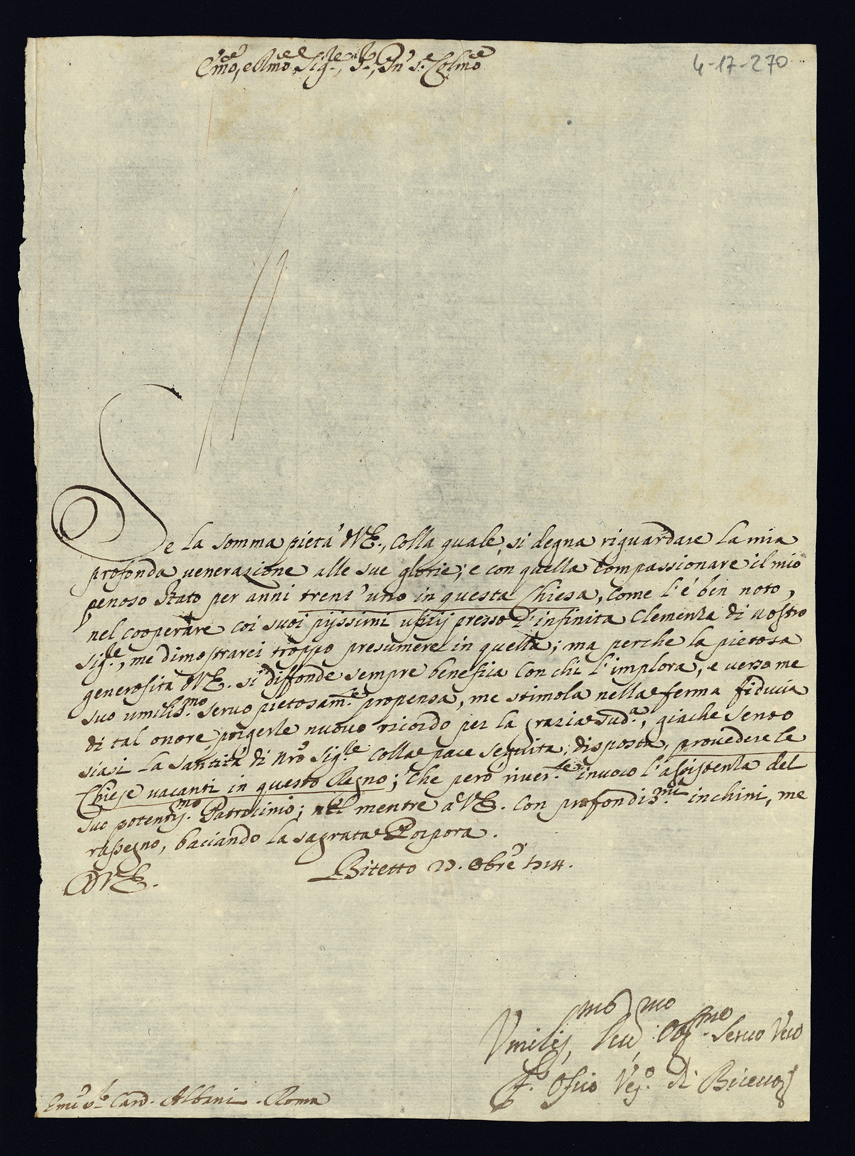 Em̃o, e Rm̃o Sig.re, P.ne Colm̃o
4-17-270
Se la somma pietà V.E., colla quale, si degna riguardare la mia
profonda venerazione alle sue glorie, e con quella compassionare il mio
penoso stato per anni trent'uno in questa Chiesa, come l'è ben noto,
nel cooperare coi suoi pijssimi ufizij presso l'infinita Clemenza di nostro
Sig.re, me dimostrarei troppo presumere in quella; ma perche la pietosa
generosità V.E. si diffonde sempre benefica con chi l'implora, e verso me
suo umilis.mo servo pietosam.te propensa, me stimola nella ferma fiducia
di tal onore, porgerle nuovo ricordo per la grazia sud.a, giache sento
siasi la Santità di Nr̃o Sig.re colla pace seguita, disposta, provedere le
Chiese vacanti in questo Regno; che però river.te invoco l'assistenza del
suo potentis.mo Patrocinio; nel mentre a V.E. con profondis.mi inchini, me
rassegno, baciando la sagrata Porpora.
D.V.E. Bitetto 23. Obre 1714.
Umilis.mo Obs.mo Servo Vero
Vesc.o di Bitetto
Em̃o S.r Card. Albini - Roma